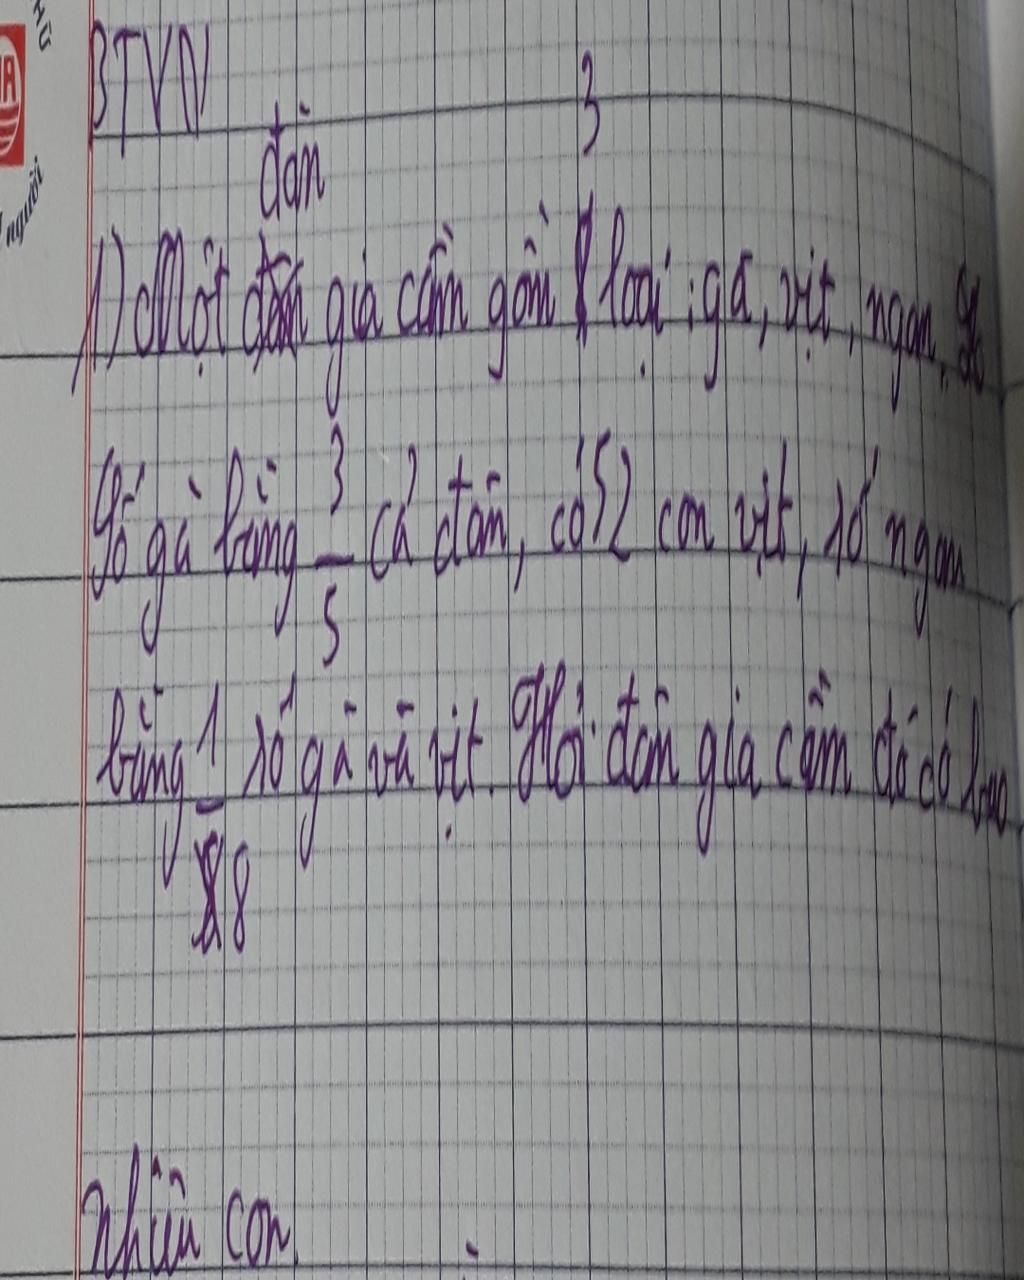 HỮ
người
BTVN
đàn 3
1) Một đàn gia cầm gồm loại : gà, vịt, ngan.
Số gà bằng 3/5 cả đàn, có 52 con vịt, số ngan
bằng 1/8 số gà và vịt. Hỏi đàn gia cầm đó có bao
nhiêu con.